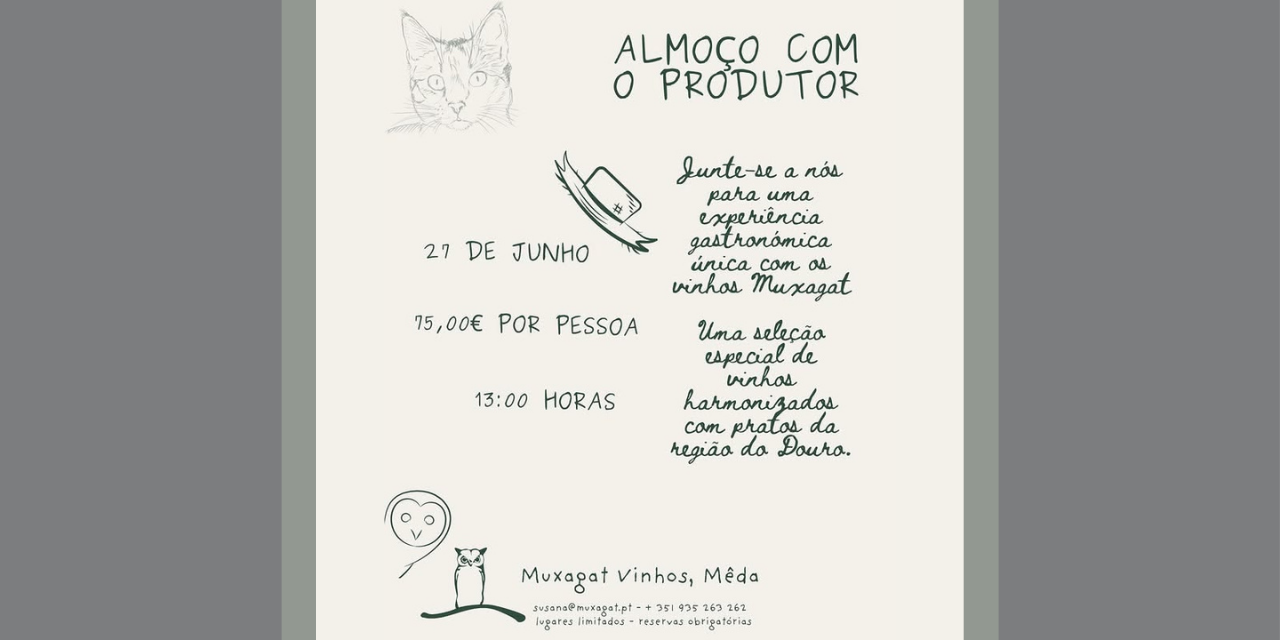 ALMOÇO COM
O PRODUTOR
Junte-se a nós
para uma
experiência
gastronómica
única com os
vinhos Muxagat
27 DE JUNHO
75,00€ POR PESSOA
13:00 HORAS
Uma seleção
especial de
vinhos
harmonizados
com pratos da
região do Douro.
Muxagat Vinhos, Mêda
susana@muxagat.pt - + 351 935 263 262
lugares limitados - reservas obrigatórias